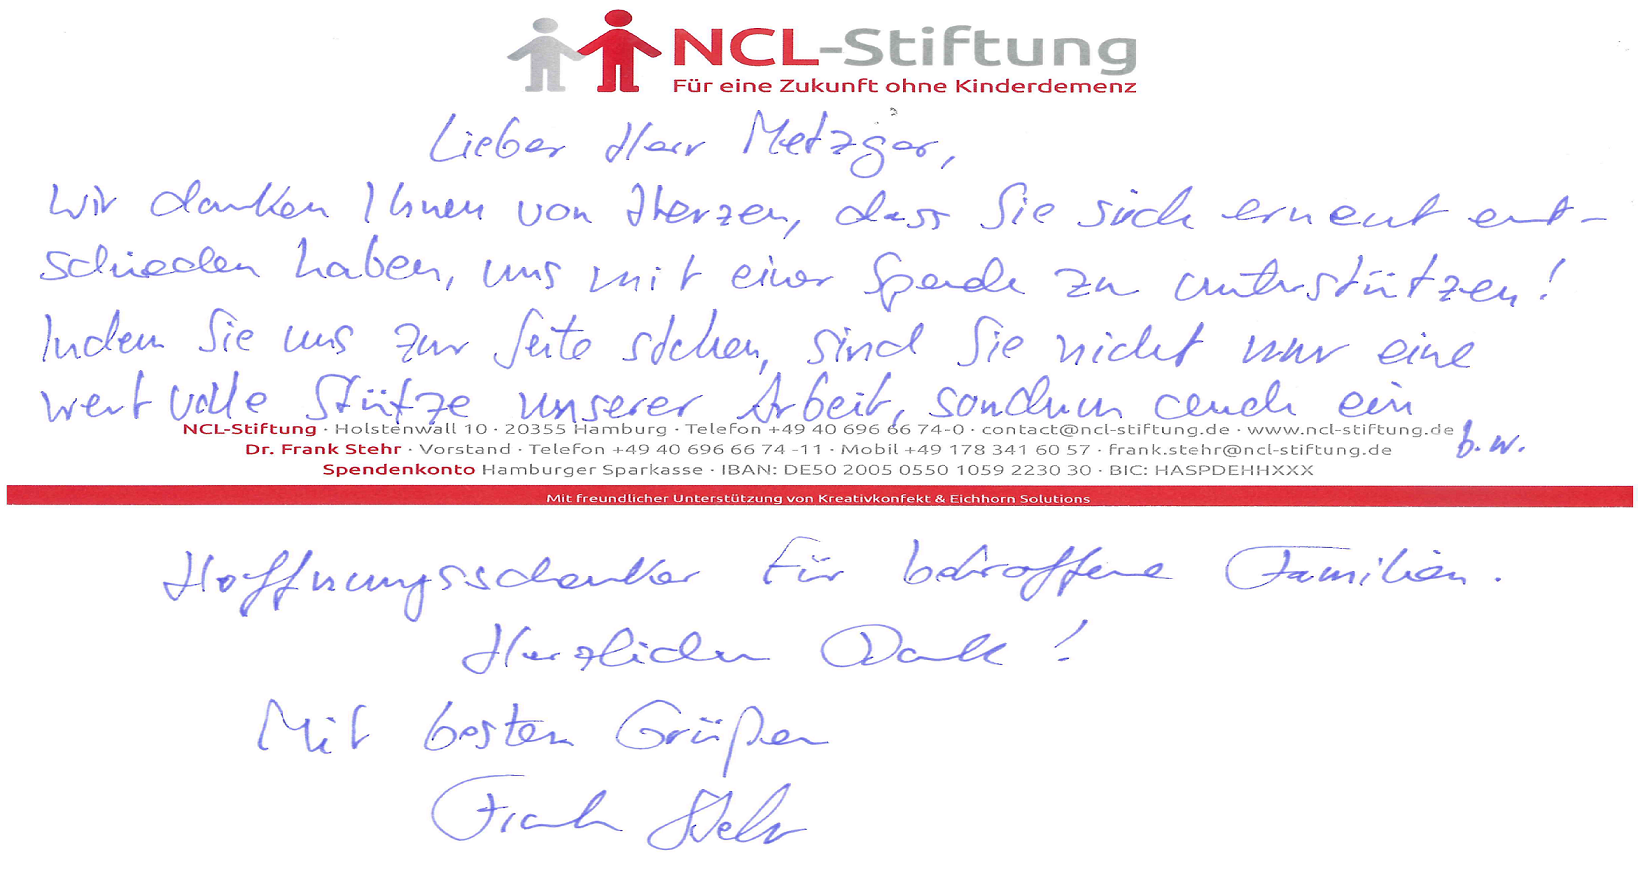 NCL-Stiftung
Für eine Zukunft ohne Kinderdemenz
Lieber Herr Metzger,
Wir danken Ihnen von Herzen, dass Sie sich erneut ent-
schieden haben, uns mit einer Spende zu unterstützen!
Indem Sie uns zur Seite stehen, sind Sie nicht nur eine
wertvolle Stütze unserer Arbeit, sondern auch ein
NCL-Stiftung · Holstenwall 10 · 20355 Hamburg · Telefon +49 40 696 66 74-0 · contact@ncl-stiftung.de · www.ncl-stiftung.de
b.w.
Dr. Frank Stehr · Vorstand · Telefon +49 40 696 66 74 -11 · Mobil +49 178 341 60 57 · frank.stehr@ncl-stiftung.de
Spendenkonto Hamburger Sparkasse · IBAN: DE50 2005 0550 1059 2230 30 · BIC: HASPDEHHXXX
Mit freundlicher Unterstützung von Kreativkonfekt & Eichhorn Solutions
Hoffnungsschenker für betroffene Familien.
Herzlichen Dank!
Mit besten Grüßen
Frank Stehr